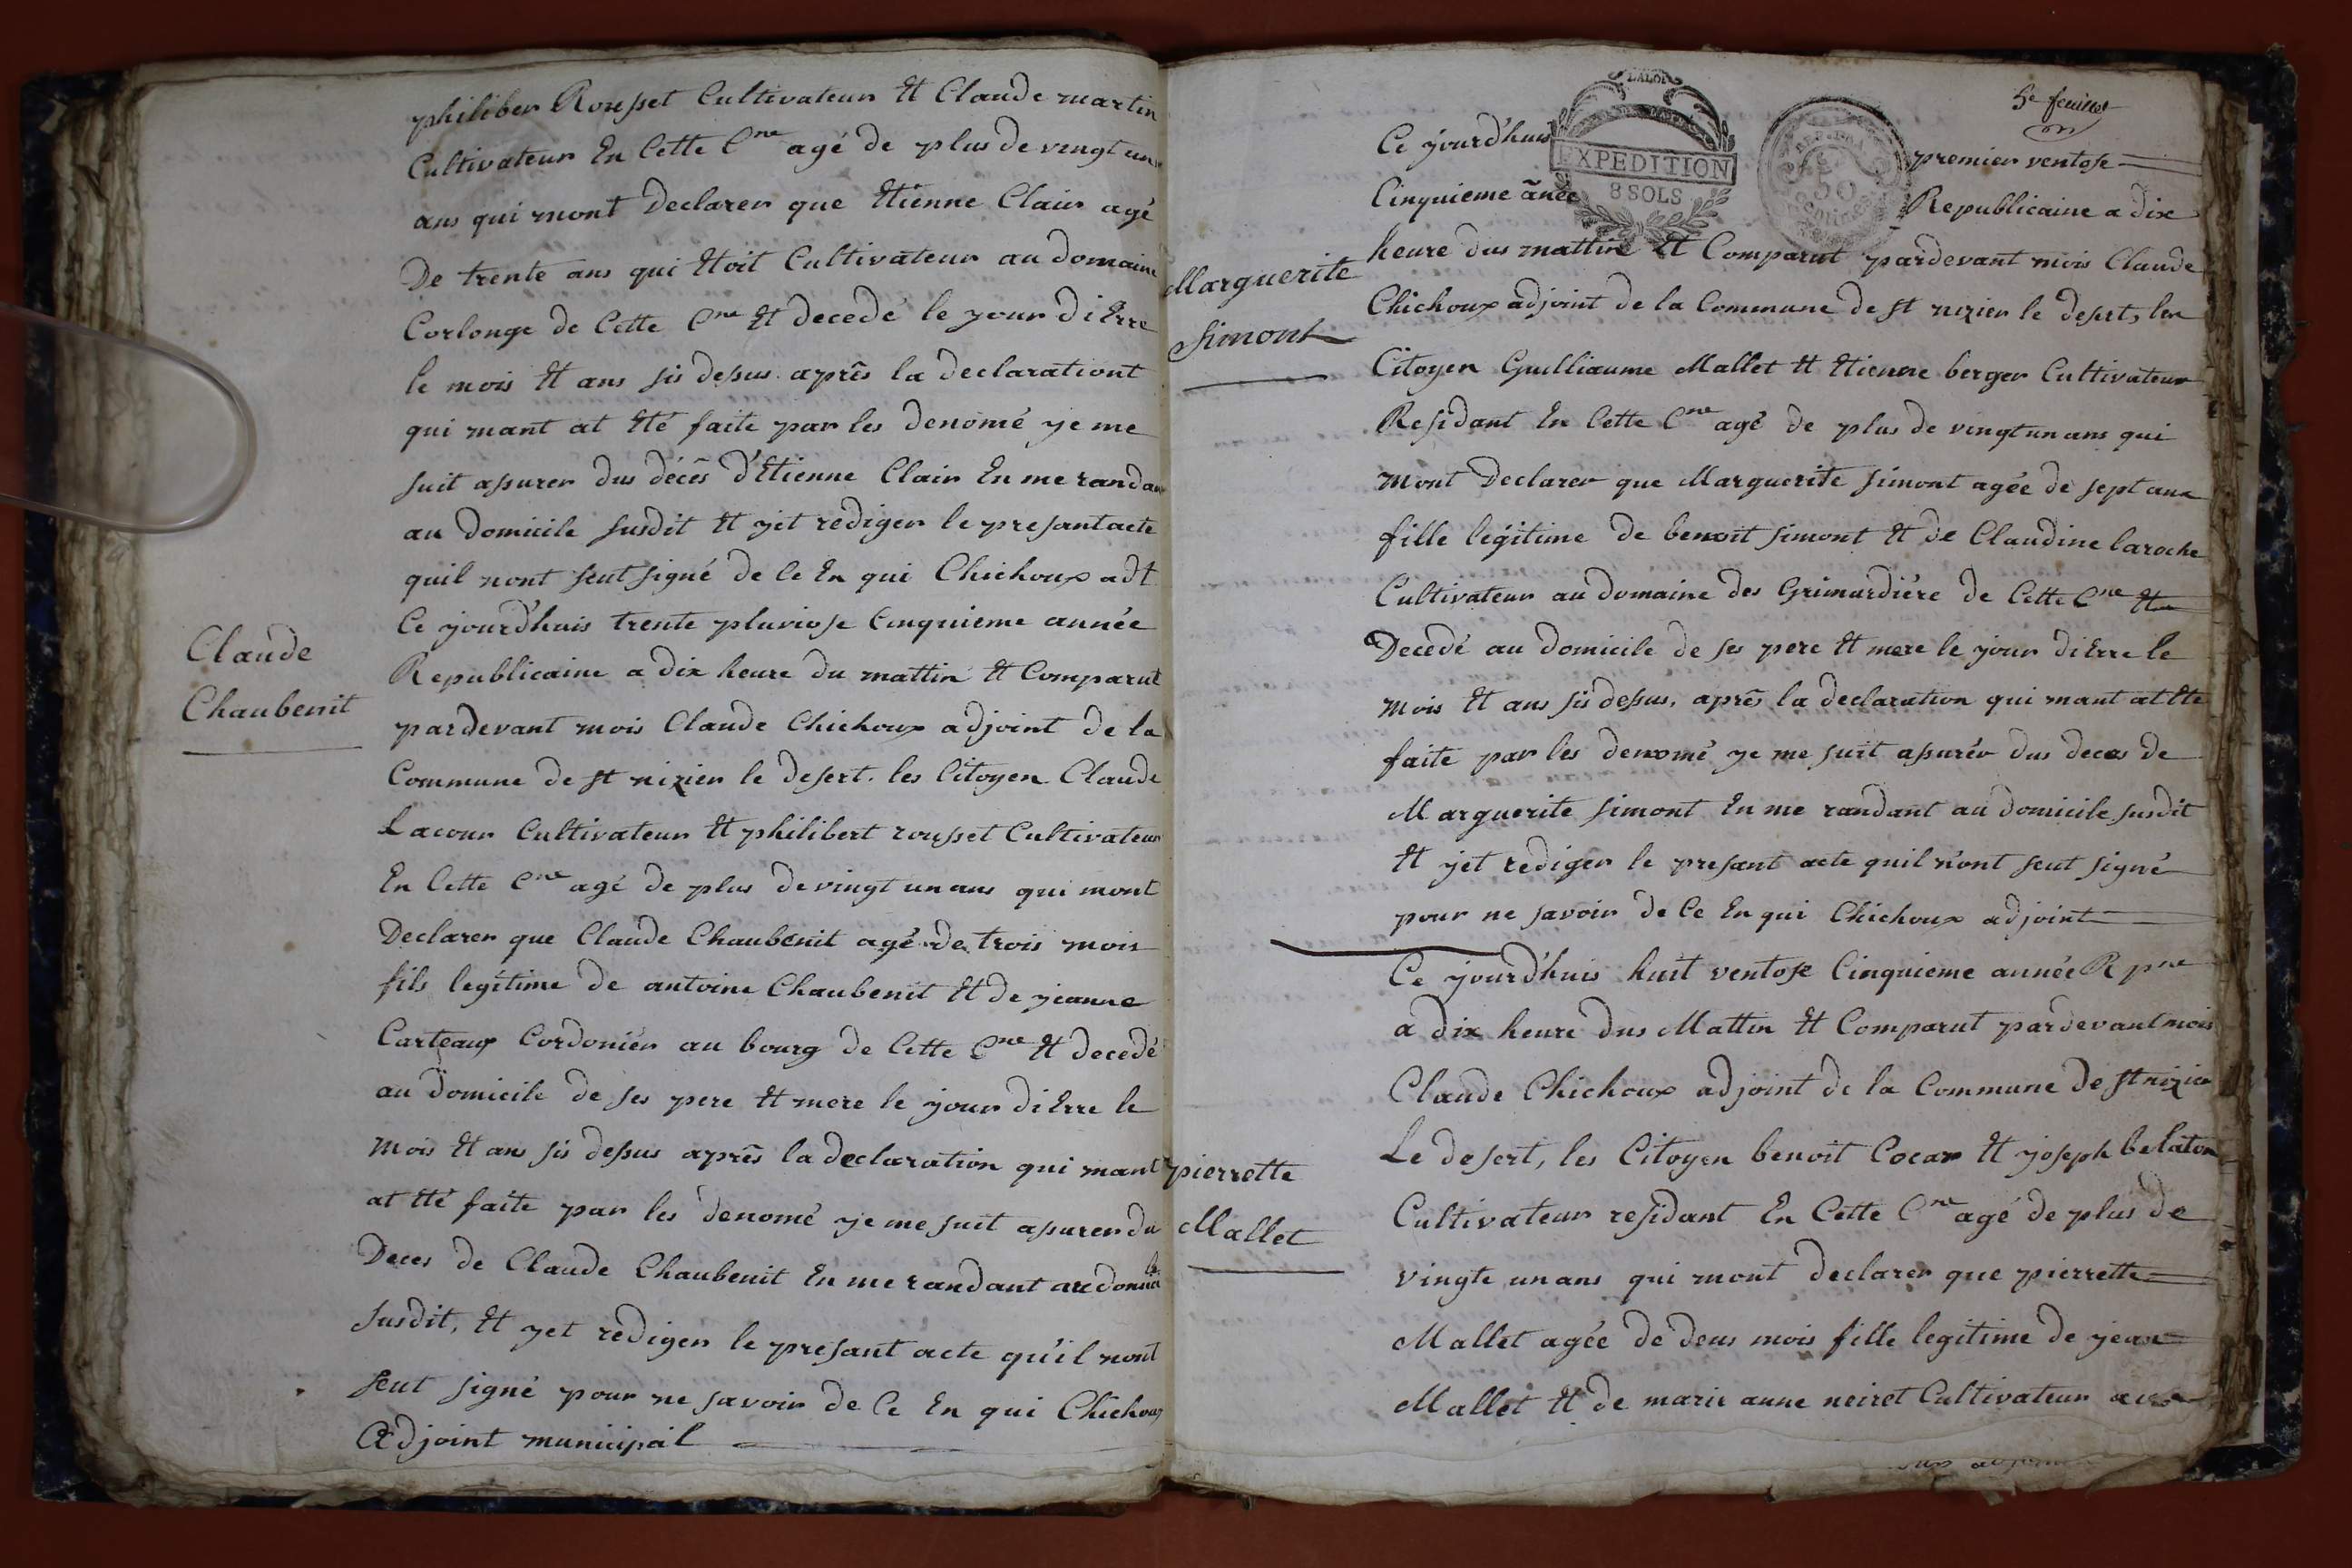 philiber Rousset Cultivateur Et Claude martin
Cultivateur En Cette Cne agé de plus de vingt un
ans qui mont Declarer que Etienne Clair agé
De trente ans qui Etoit Cultivateur au domaine
Corlonge de Cette Cne Et decedé le jour di Erre
le mois Et ans sis desus après la declarationt
qui mant at Eté faite par les denomé je me
suit asurer dus décès d'Etienne Clair En me randant
au domicile susdit Et jet rediger le presant acte
quil nont seut signé de Ce En qui Chichoux adt
Claude
Chaubenit
Ce jourd'huis trente pluviose Cinquieme année
Republicaine a dix heure du mattin Et Comparut
pardevant mois Claude Chichoux adjoint de la
Commune de st nizier le desert. les Citoyen Claude
Lacour Cultivateur Et philibert rousset Cultivateur
En Cette Cne agé de plus de vingt un ans qui mont
Declarer que Claude Chaubenit agé de trois mois
fils legitime de antoine Chaubenit Et de jeanne
Carteaux Cordoniér au bourg de Cette Cne Et decedé
au domicile de ses pere Et mere le jour di Erre le
mois Et ans sis desus après la declaration qui mant
at Eté faite par les denomé je me suit asurer du
Deces de Claude Chaubenit En me randant au domicile
susdit, Et jet rediger le presant acte qu'il nont
seut signé pour ne savoir de Ce En qui Chichoux
Adjoint municipal
5e feuillet
LA LOI
EXPEDITION
8 SOLS
50
centimes
Marguerite
Simont
Ce jourd'huis premier ventose
Cinquieme anée Republicaine a dix
heure dus mattin Et Comparut pardevant mois Claude
Chichoux adjoint de la Commune de st nizier le desert, les
Citoyen Guilliaume Mallet Et Etienne berger Cultivateur
Residant En Cette Cne agé de plus de vingt un ans qui
mont Declarer que Marguerite Simont agée de sept ans
fille légitime de benoit Simont Et de Claudine laroche
Cultivateur au domaine des Grimardiére de Cette Cne Et
Decedé au domicile de ses pere Et mere le jour di Erre le
mois Et ans sis desus, après la declaration qui mant at Eté
faite par les denomé je me suit asurér dus deces de
Marguerite Simont En me randant au domicile susdit
Et jet rediger le presant acte quil n'ont seut signé
pour ne savoir de Ce En qui Chichoux adjoint
pierrette
Mallet
Ce jourd'huis huit ventose Cinquieme année Rpne
a dix heure dus Mattin Et Comparut pardevant mois
Claude Chichoux adjoint de la Commune de st nizier
Le desert, les Citoyen benoit Cocar Et joseph belaton
Cultivateur residant En Cette Cne agé de plus de
vingte un ans qui mont declarer que pierrette
Mallet agée de deus mois fille legitime de jean
Mallet Et de marie anne neiret Cultivateur aux